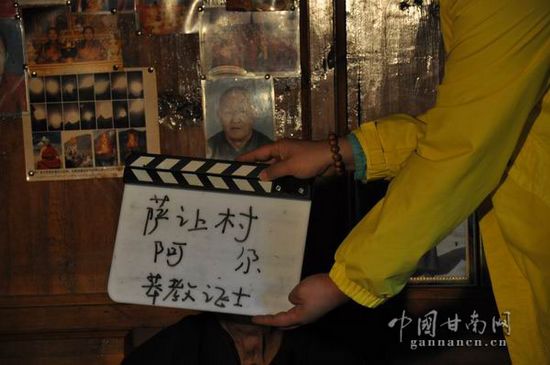 萨让村
阿 尔
苯教证士
中国甘南网
gannancn.cn